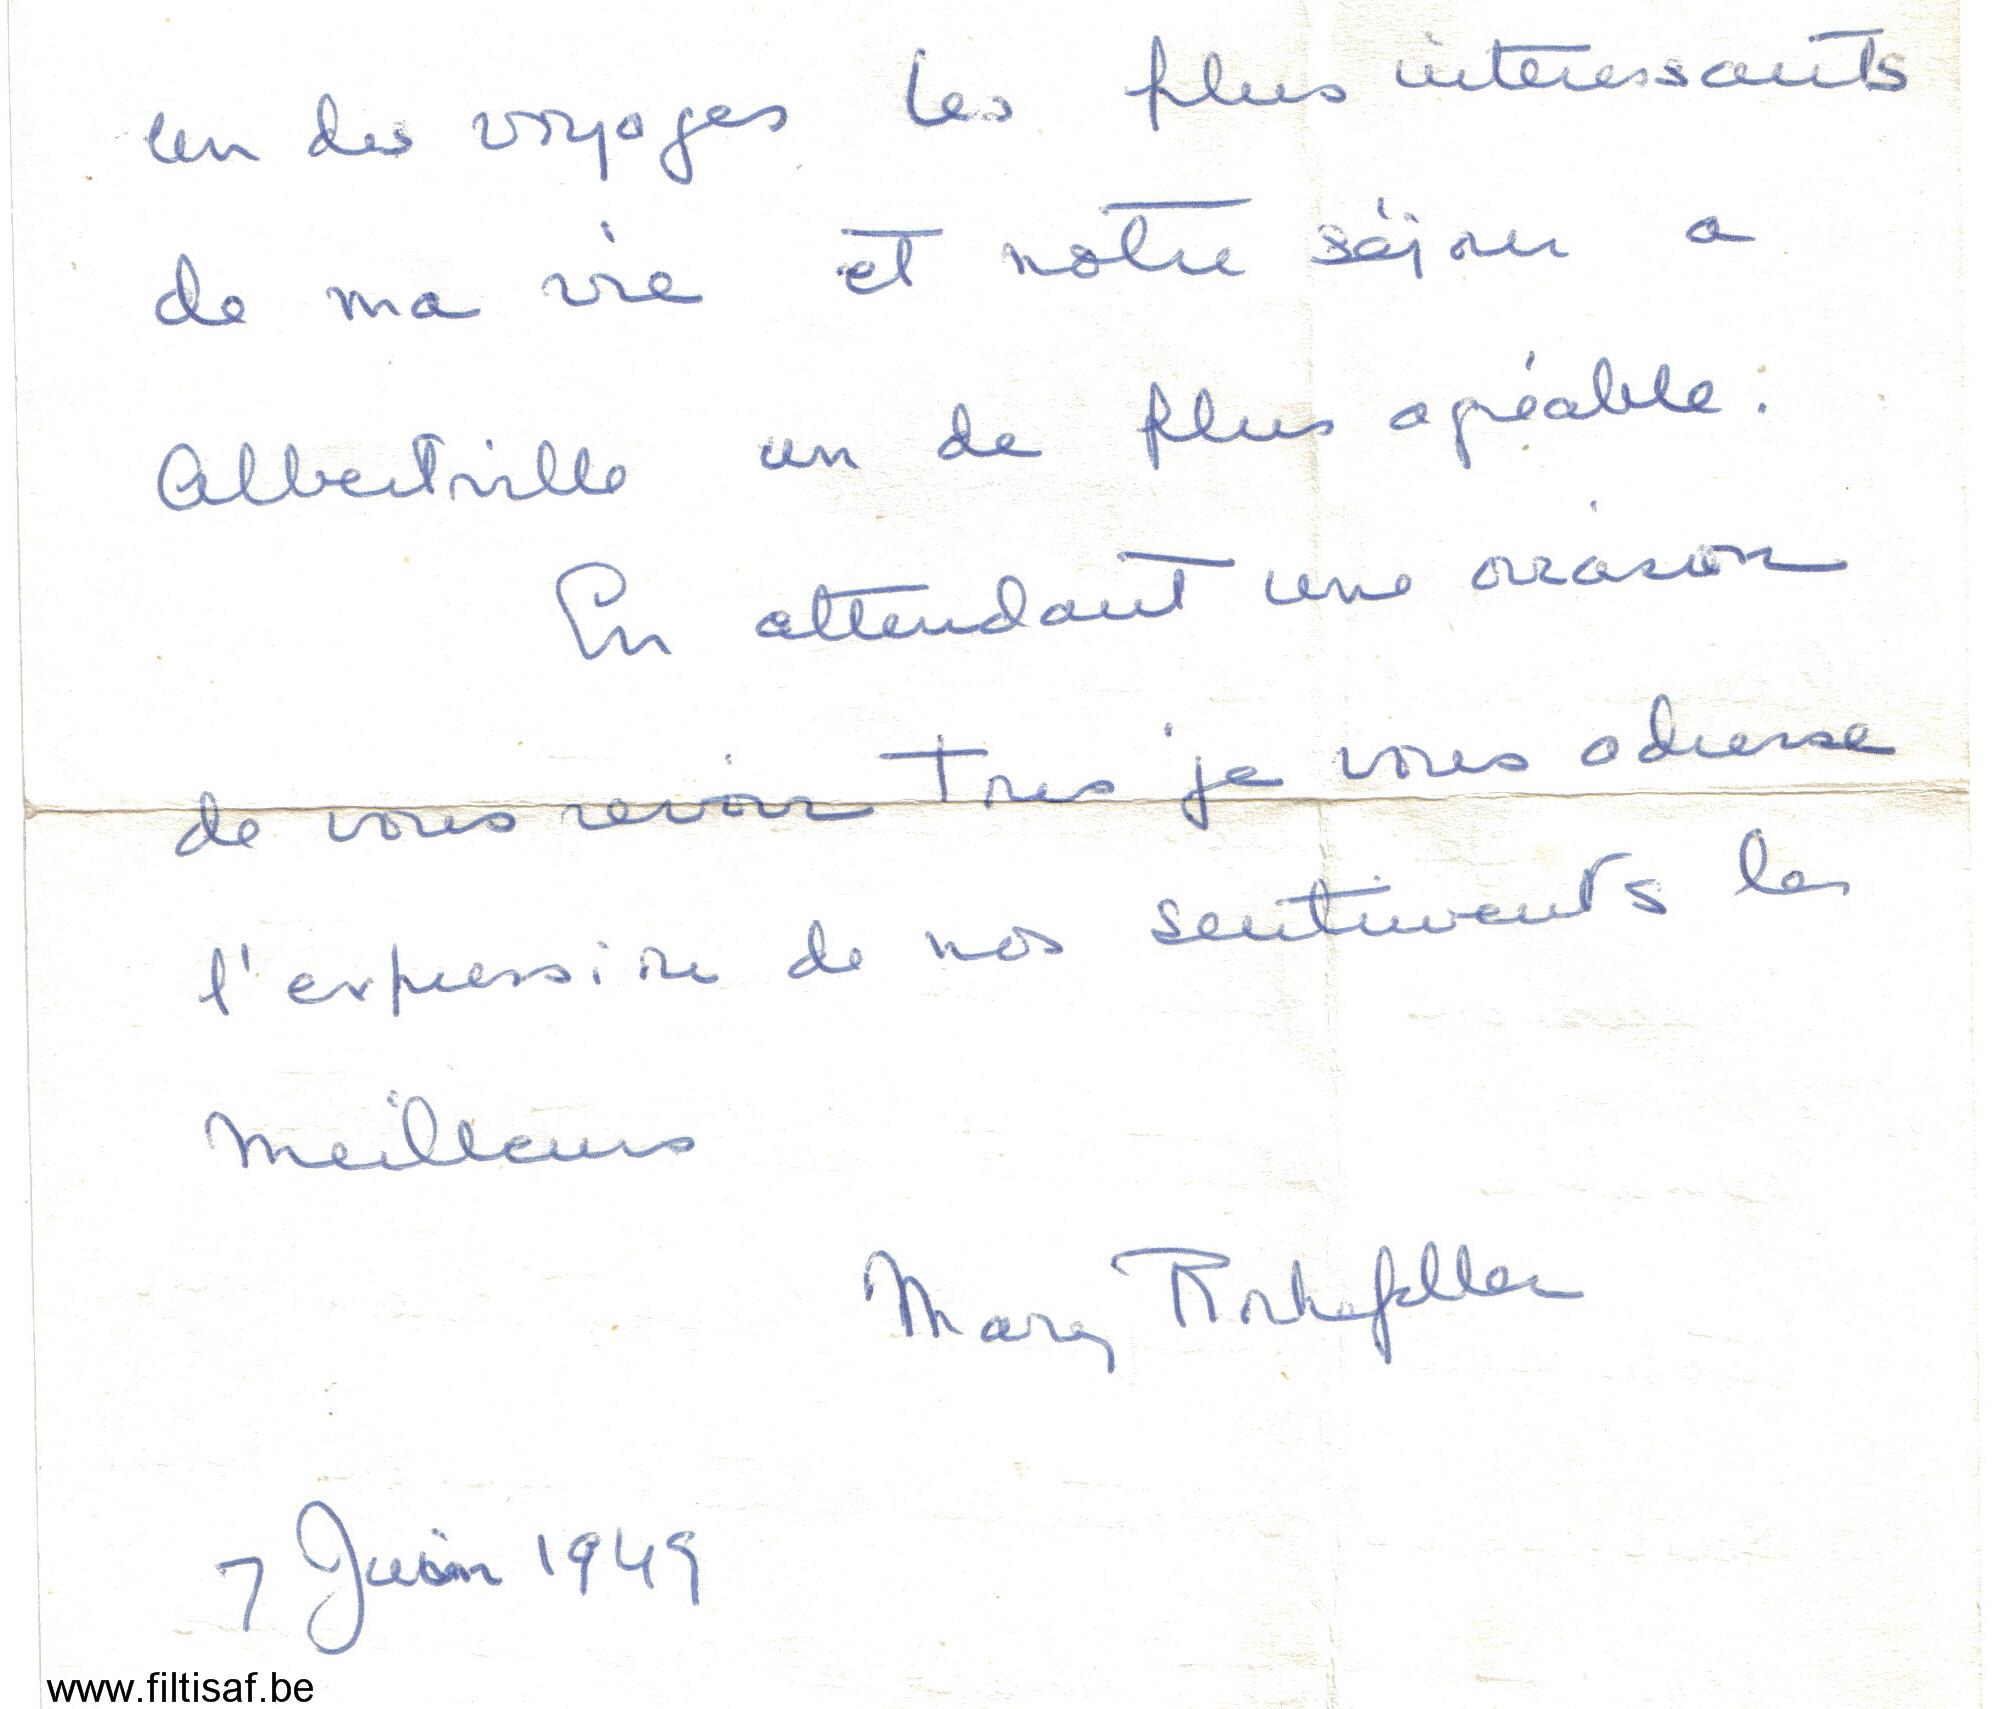 un des voyages les plus interessants
de ma vie et notre séjour a
Albertville un de plus agréable.
En attendant une occasion
de vous revoir tres je vous adresse
l'expression de nos sentiments les
meilleurs
Mary Rockefeller
7 Juin 1949
www.filtisaf.be